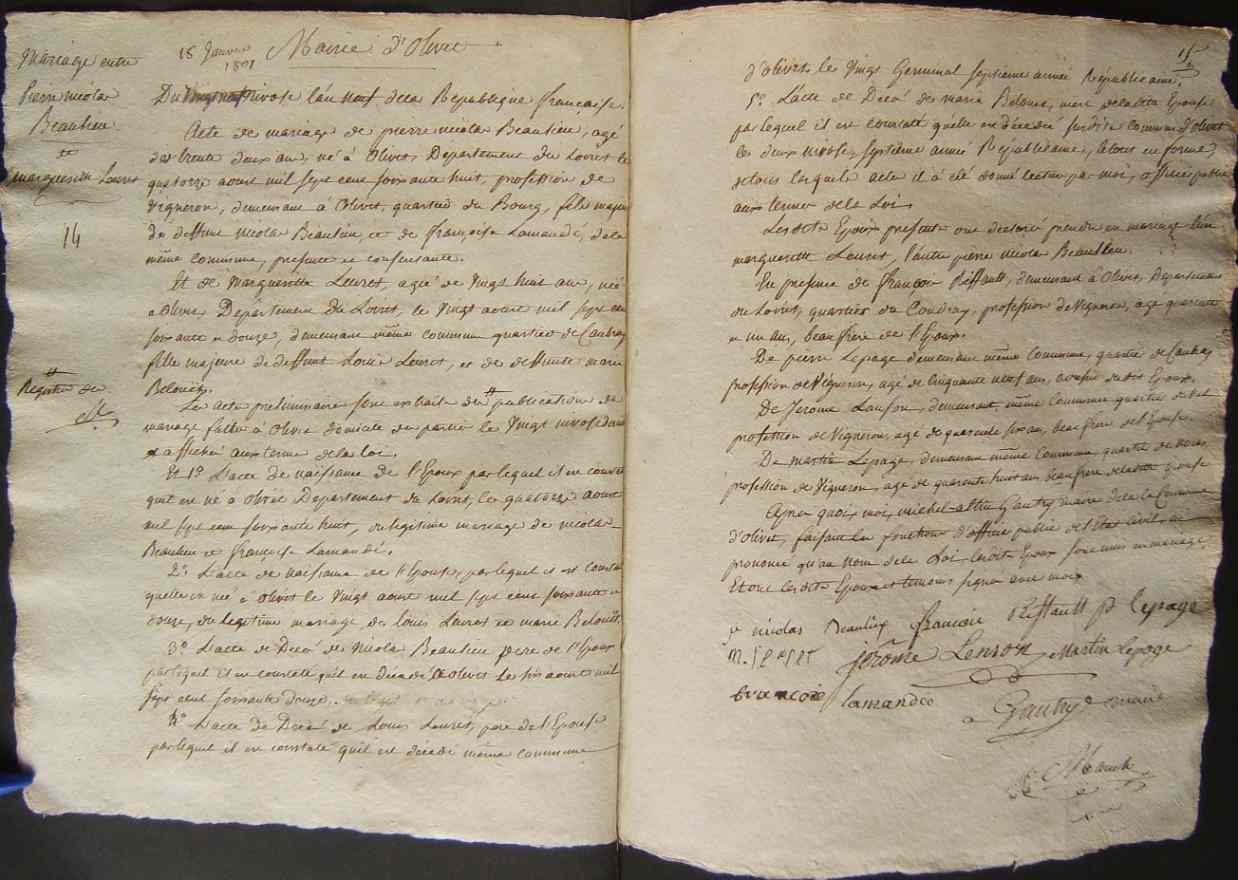 Mariage entre
Pierre nicolas
Beaulieu
et
marguerite Louret
14
Registre de
18 Janvier
1801
Mairie d'Olivet
Du nivose l'an neuf de la République française.
Acte de mariage de pierre nicolas Beaulieu, agé
de trente deux ans, né à Olivet, Département du Loiret le
quatorze aoust mil sept cent soixante huit, profession de
Vigneron, demeurant à Olivet, quartier du Bourg, fils majeur
de deffunt nicolas Beaulieu, et de françoise Lamandé, de la
même commune, presente et consentante.
Et de Marguerette Louret, agée de vingt huit ans, née
à Olivet, Département du Loiret, le vingt aoust mil sept cent
soixante et douze, demeurant même commune quartier de Caubray
fille majeure de deffunt Louis Louret, et de deffunte marie
Belouet.
Les actes preliminaires sont extraits des publications de
mariage faittes à Olivet domicile du parties le vingt nivose
et affichés aux termes de la loi.
Et 1º L'acte de naissance de l'Epoux par lequel il en conste
quil est né à Olivet Département du Loiret, le quatorze aoust
mil sept cent soixante huit, du légitime mariage de nicolas
Beaulieu et françoise Lamandé.
2º L'acte de naissance de l'Epouse, par lequel il est constaté
quelle est née à Olivet le vingt aoust mil sept cent soixante et
douze, du légitime mariage de louis Louret et marie Belouet.
3º L'acte de Decé de Nicolas Beaulieu pere de l'Epoux
par lequel il en constate quil est décédé à Olivet le six aoust mil
sept cent soixante douze.
4º L'acte de Decé de Louis Louret, pere de l'Epouse
par lequel il en constate quil est décédé même commune
15
d'olivet, le vingt Germinal septieme année Républicaine.
5º L'acte de Decé de marie Belouet, mere de la ditte Epouse
par lequel il en constate quelle en décédée susdite commune d'olivet
les deux nivose, septieme année Républicaine, le tout en forme,
de tous lesquels actes il à été donné lecture par moi, officier public
aux termes de la Loi.
Lesdits Epoux presents ont déclaré prendre en mariage l'un
marguerette Louret, l'autre pierre nicolas Beaulieu.
En presence de françois Riffault, demeurant à Olivet, Département
du Loiret, quartier du Coudray, profession de Vigneron, agé quarante
et un ans, beaufrere de l'Epoux.
De pierre Lepage demeurant même Commune, quartier de Caubray
profession de Vigneron, agé de Cinquante neuf ans, cousin dudit Epoux.
De Jerome Lanson, demeurant même commune quartier de
profession de Vigneron, agé de quarante six ans, beau frere de l'Epouse.
De Martin Lepage, demeurant même Commune quartier de
profession de Vigneron, age de quarante huit ans beau frere de ladite Epouse
Apres quoi, moi, michel Gautry maire de la Commune
d'Olivet, faisant les fonctions d'officier public de l'Etat civil, ai
prononcé qu'au Nom de la Loi, lesdits Epoux sont unis en mariage.
Et ont lesdits Epoux et temoins signé avec moi.
nicolas Beaulieu françois Riffault p lepage
Jérôme Lenson Martin Lepage
françoise lamandée
Gautry maire